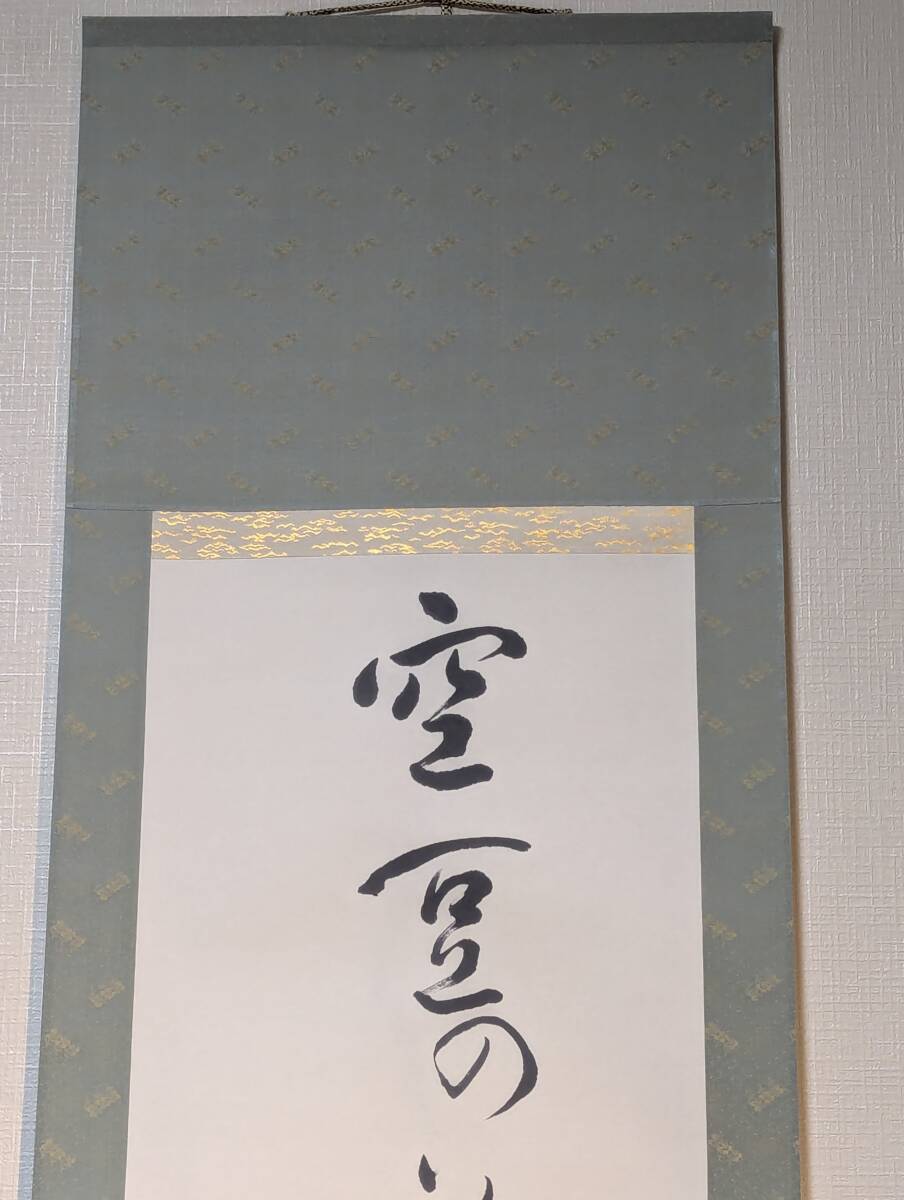 空豆の